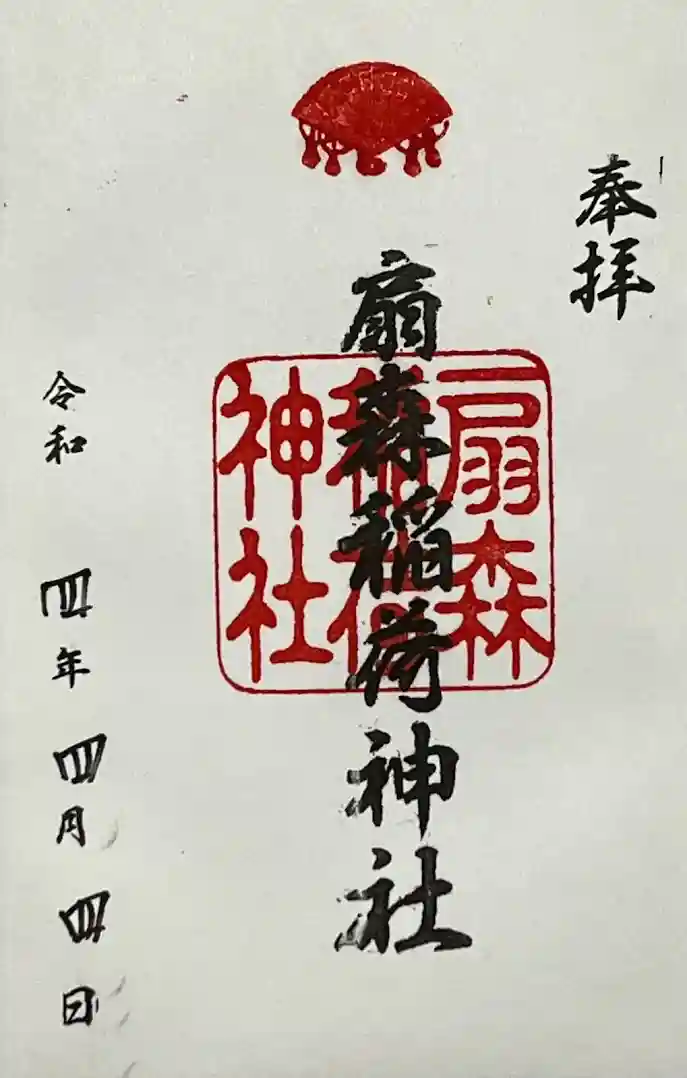 奉拝
扇森稲荷神社
扇森
稲荷
神社
令和四年四月四日